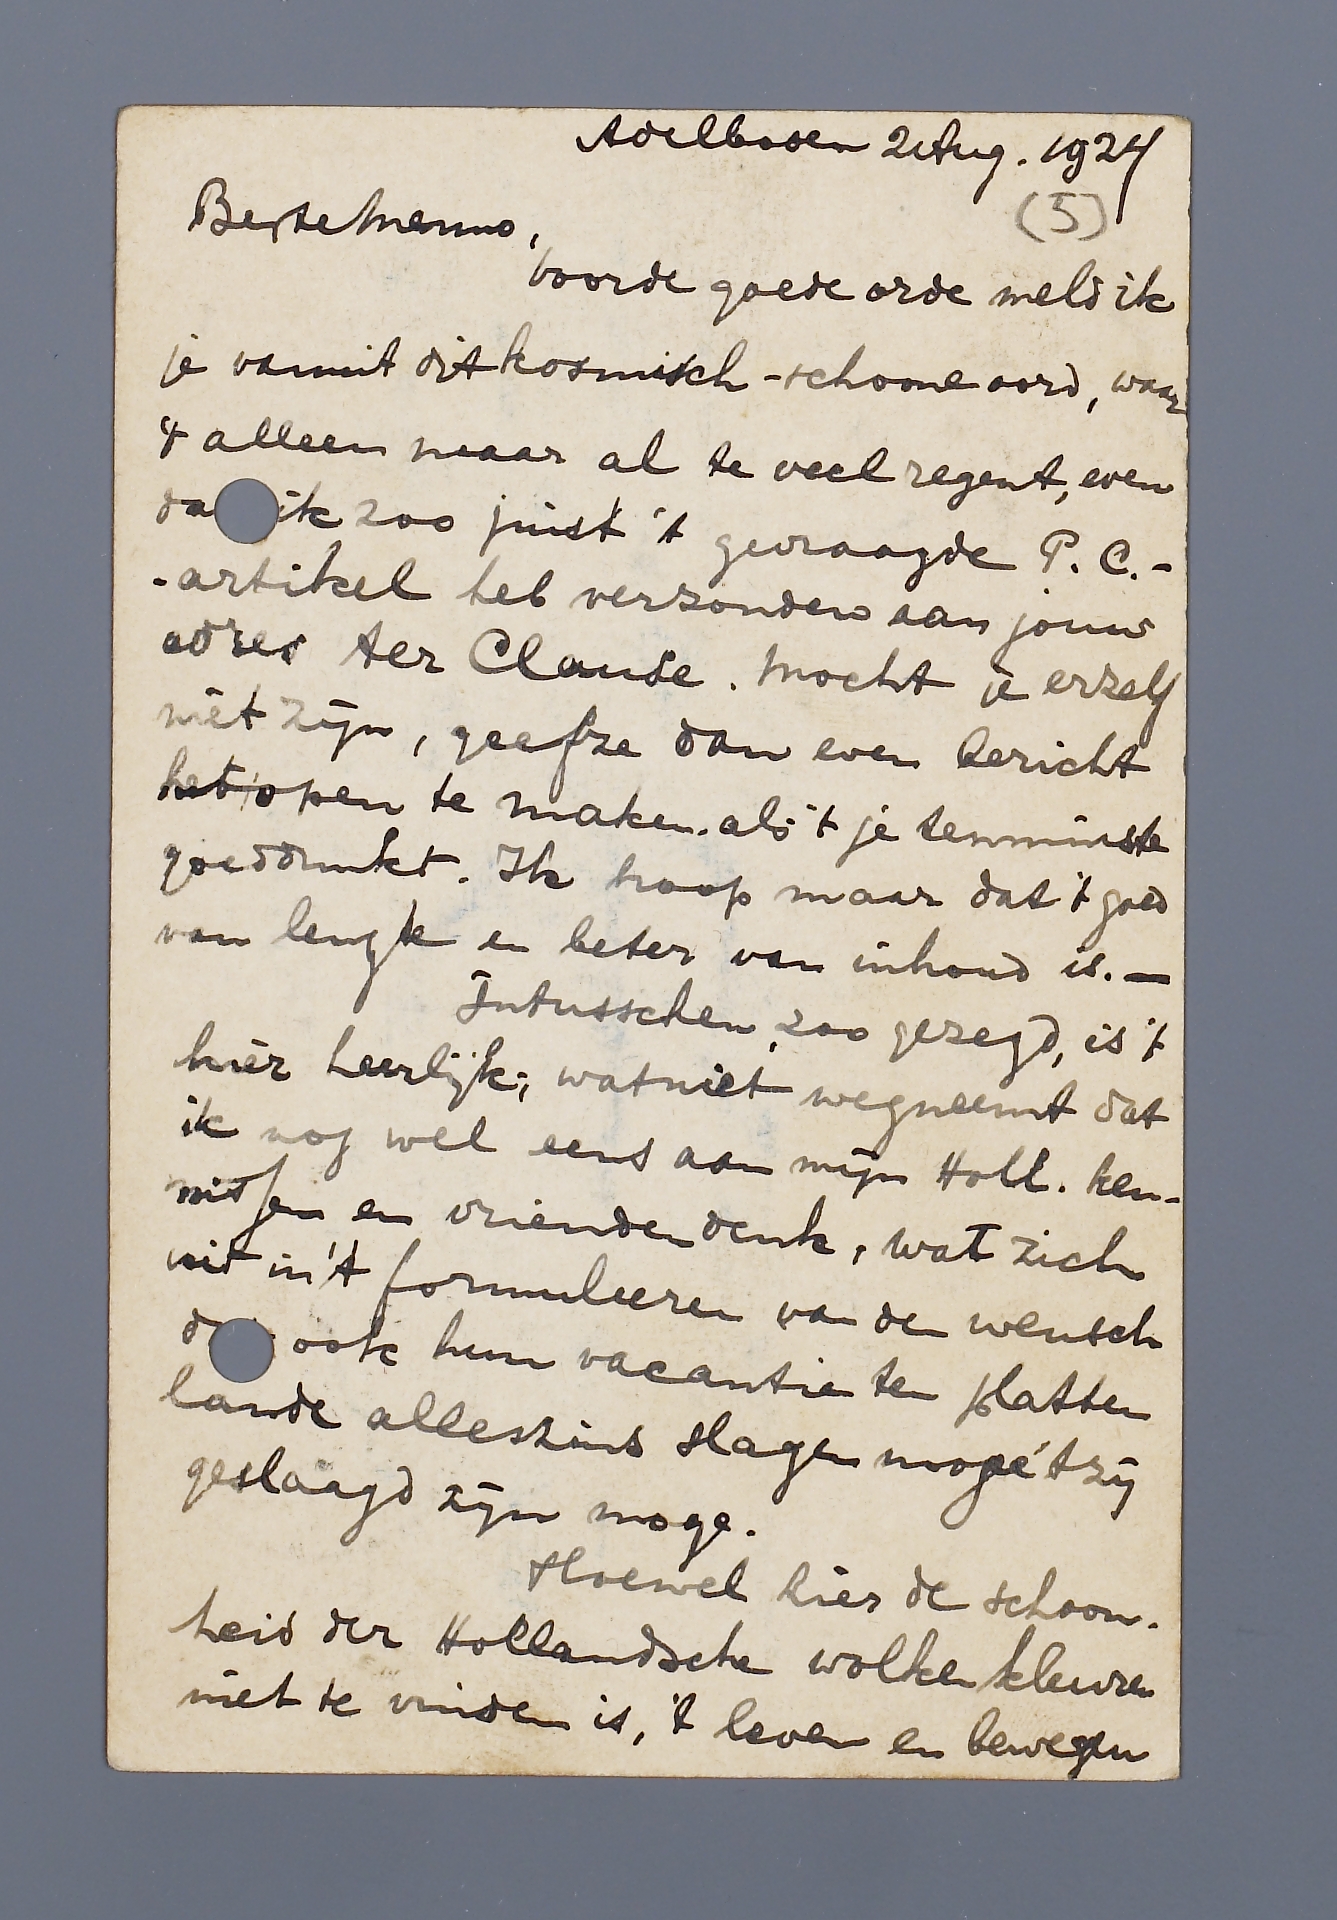 Adelboden 2 Aug. 1924
(5)
Beste Menno,
Voor de goede orde meld ik
je vanuit dit kosmisch-schoone oord, waar
't alleen maar al te veel regent, even
da ik zoo juist 't gevraagde P. C.-
-artikel heb verzonden aan jouw
adres ter Clause. Mocht je er zelf
niet zijn, geef ze dan even bericht
het open te maken. als 't je tenminste
goeddunkt. Ik hoop maar dat 't goed
van lengte en beter van inhoud is. —
Intusschen, zoo gezegd, is 't
hier heerlijk; wat niet wegneemt dat
ik nog wel eens aan mijn Holl. ken-
nissen en vrienden denk, wat zich
uit in 't formuleeren van de wensch
d ook hun vacantie ten platten
lande alleszins slagen moge 't zij
geslaagd zijn moge.
Hoewel hier de schoon-
heid der Hollandsche wolkenkleuren
niet te vinden is, 't leven en bewegen